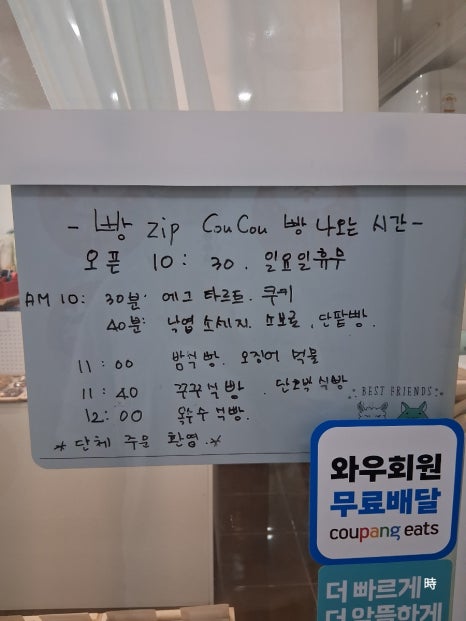 - 빵 zip CouCou 빵 나오는 시간 -
오픈 10 : 30 . 일요일휴무
AM 10 : 30분· 에그 타르트. 쿠키
40분· 낙엽 소세지. 소보로 , 단팥빵.
11 : 00 밤식빵. 오징어 먹물
11 : 40 꾸꾸식빵 . 단호박 식빵
12 : 00 옥수수 식빵.
* 단체 주문 환영.*
BEST FRIENDS
와우회원
무료배달
coupang eats
더 빠르게 時
더 알뜰하게